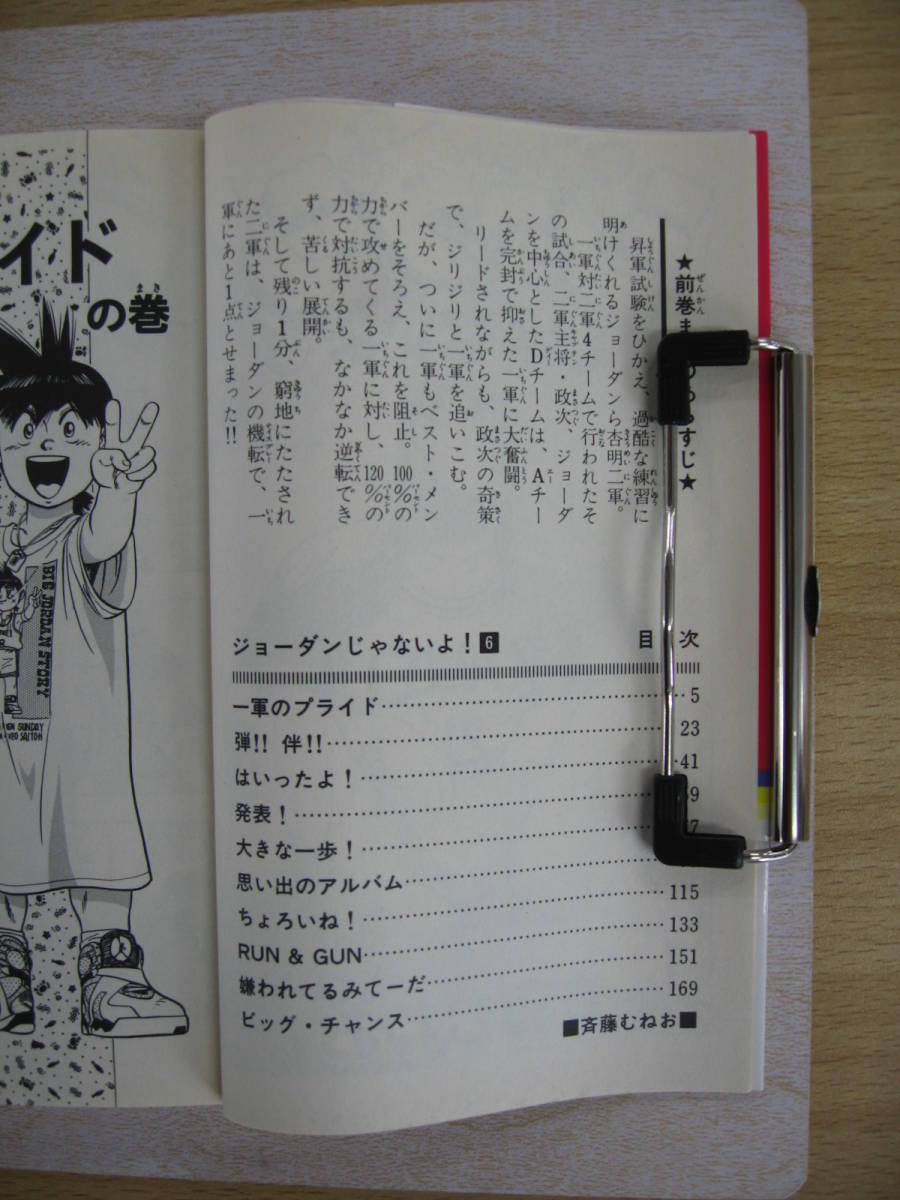 ★前巻ま
らすじ★
昇軍試験をひかえ、過酷な練習に
明けくれるジョーダンら杏明二軍。
一軍対二軍4チームで行われたそ
の試合、二軍主将・政次、ジョーダ
ンを中心としたDチームは、Aチー
ムを完封で抑えた一軍に大奮闘。
リードされながらも、政次の奇策
で、ジリジリと一軍を追いこむ。
だが、ついに一軍もベスト・メン
バーをそろえ、これを阻止。100%の
力で攻めてくる一軍に対し、120%の
力で対抗するも、なかなか逆転でき
ず、苦しい展開。
そして残り1分、窮地にたたされ
た二軍は、ジョーダンの機転で、一
軍にあと1点とせまった!!
ジョーダンじゃないよ! 6 目次
一軍のプライド……5
弾!! 伴!!……23
はいったよ!……41
発表!……
大きな一歩!……
思い出のアルバム……
ちょろいね!……115
RUN & GUN……133
嫌われてるみてーだ……151
ビッグ・チャンス……169
■斉藤むねお■
イド
の巻
BIG JORDAN STORY
SUNDAY
SAITOH